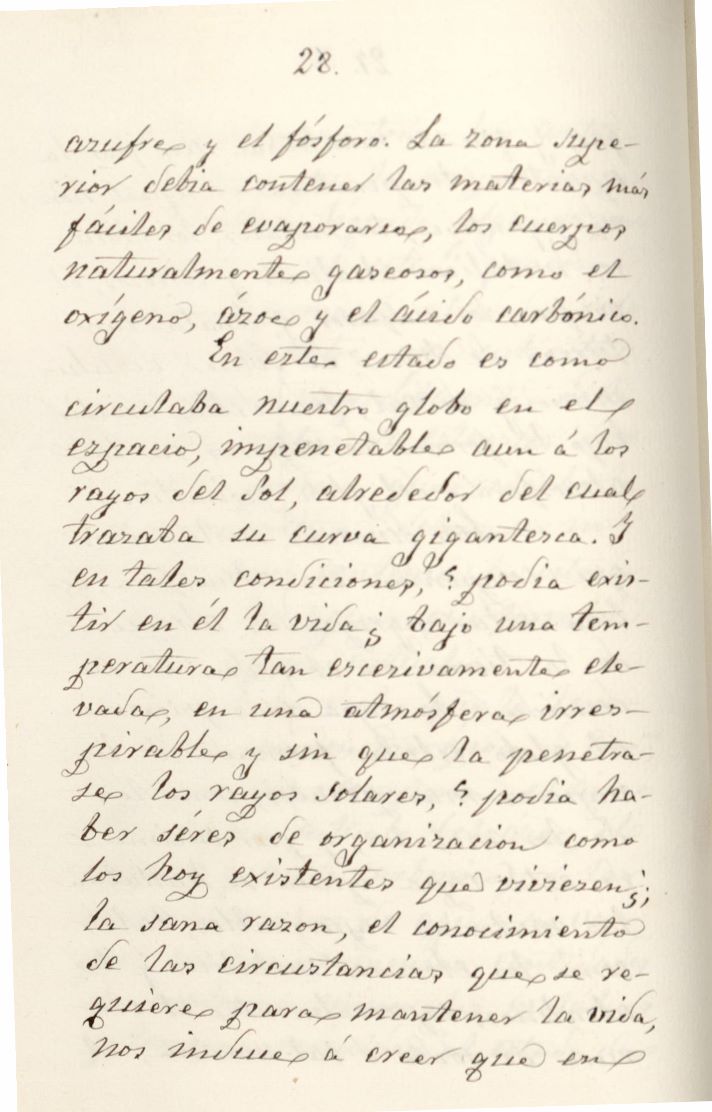 28.
azufre y el fósforo. La zona supe-
rior debia contener las materias más
fáciles de evaporarse, los cuerpos
naturalmente gaseosos, como el
oxígeno, ázoe y el ácido carbónico.
En este estado es como
circulaba nuestro globo en el
espacio, impenetable aun á los
rayos del Sol, alrededor del cual
trazaba su curva gigantesca. Y
en tales condiciones, ? podia exis-
tir en él la vida¿ bajo una tem-
peratura tan escesivamente ele-
vada, en una atmósfera irres-
pirable y sin que la penetra-
se los rayos solares, ? podia ha-
ber séres de organizacion como
los hoy existentes que viviesen¿;
la sana razon, el conocimiento
de las circustancias que se re-
quiere para mantener la vida,
nos induce á creer que en